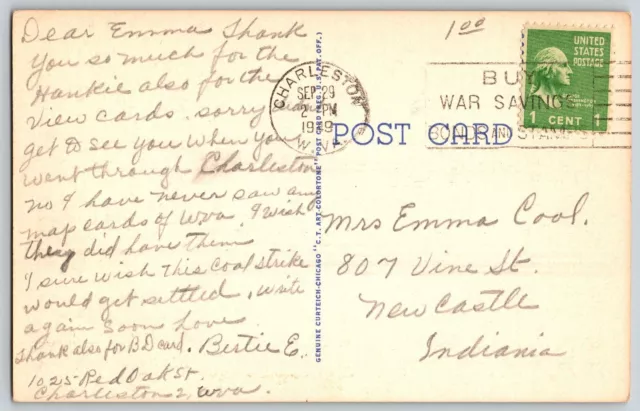 Dear Emma Thank
You so much for the
Hankie also for the
View cards. sorry
get to see you when you
went through Charleston
no I have never saw any
map cards of Wva I wish
they did have them
I sure wish this coal strike
would get settled, write
again soon love
Thank also for BD card. Bertie E.
1025 Red Oak St.
Charleston 2, Wva.
GENUINE CURTEICH-CHICAGO "C.T. ART-COLORTONE" POST CARD (REG. U.S. PAT. OFF.)
1.00
CHARLESTON
SEP 29
PM
W.VA.
BUY
WAR SAVINGS
BONDS AND STAMPS
UNITED
STATES
POSTAGE
1 CENT 1
POST CARD
Mrs Emma Cool.
807 Vine St.
New Castle
Indiania